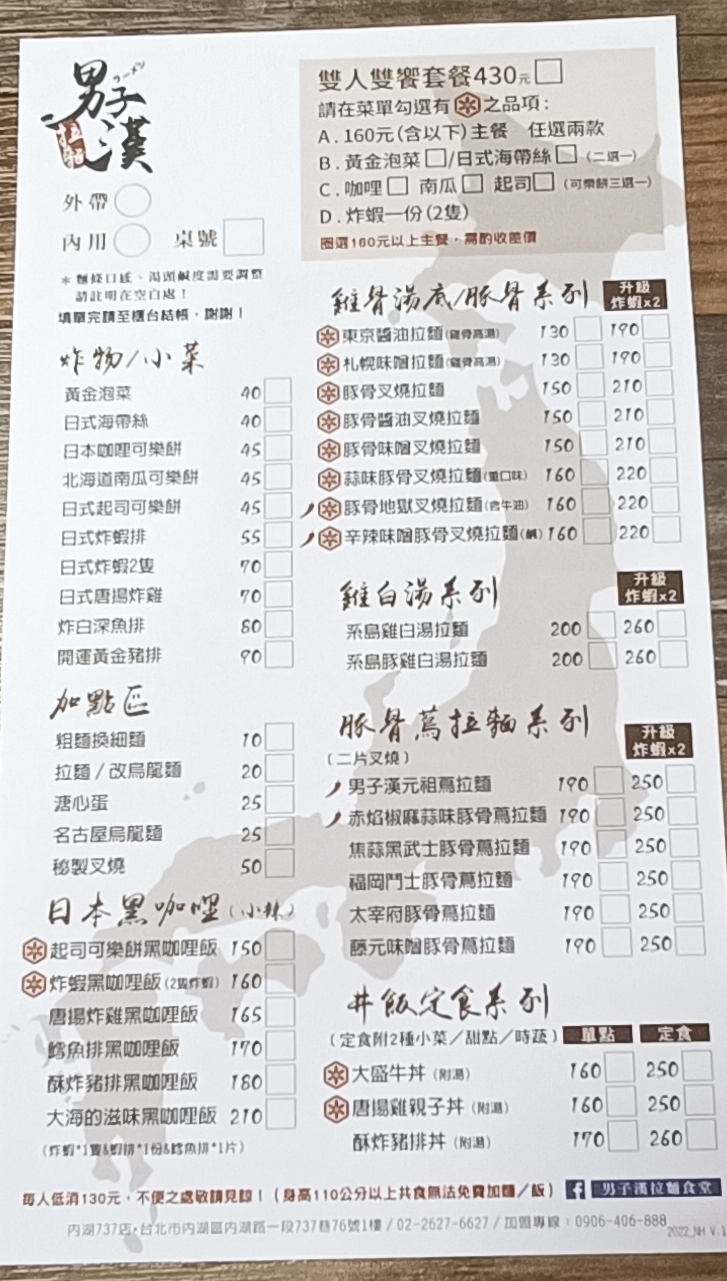 男子漢
拉麵
外帶
內用 桌號
＊麵條口感、湯頭鹹度需要調整
請註明在空白處！
填單完請至櫃台結帳，謝謝！
炸物/小菜
黃金泡菜 40
日式海帶絲 40
日本咖哩可樂餅 45
北海道南瓜可樂餅 45
日式起司可樂餅 45
日式炸蝦排 55
日式炸蝦2隻 70
日式唐揚炸雞 70
炸白深魚排 80
開運黃金豬排 90
加點區
粗麵換細麵 10
拉麵/改烏龍麵 20
溏心蛋 25
名古屋烏龍麵 25
秘製叉燒 50
日本黑咖哩(小辣)
起司可樂餅黑咖哩飯 150
炸蝦黑咖哩飯(2隻炸蝦) 160
唐揚炸雞黑咖哩飯 165
鱈魚排黑咖哩飯 170
酥炸豬排黑咖哩飯 180
大海的滋味黑咖哩飯 210
(炸蝦*1隻&蝦排*1份&鱈魚排*1片)
雙人雙饗套餐430元
請在菜單勾選有之品項：
A.160元(含以下)主餐 任選兩款
B.黃金泡菜/日式海帶絲 (二選一)
C.咖哩 南瓜 起司 (可樂餅三選一)
D.炸蝦一份(2隻)
圈選160元以上主餐，需酌收差價
雞骨湯底/豚骨系列 升級炸蝦x2
東京醬油拉麵(雞骨高湯) 130 190
札幌味噌拉麵(雞骨高湯) 130 190
豚骨叉燒拉麵 150 210
豚骨醬油叉燒拉麵 150 210
豚骨味噌叉燒拉麵 150 210
蒜味豚骨叉燒拉麵(重口味) 160 220
豚骨地獄叉燒拉麵(含牛油) 160 220
辛辣味噌豚骨叉燒拉麵(鹹) 160 220
雞白湯系列 升級炸蝦x2
系島雞白湯拉麵 200 260
系島豚雞白湯拉麵 200 260
豚骨蔦拉麵系列 升級炸蝦x2
(二片叉燒)
男子漢元祖蔦拉麵 190 250
赤焰椒麻蒜味豚骨蔦拉麵 190 250
焦蒜黑武士豚骨蔦拉麵 190 250
福岡鬥士豚骨蔦拉麵 190 250
太宰府豚骨蔦拉麵 190 250
藤元味噌豚骨蔦拉麵 190 250
丼飯定食系列
(定食附2種小菜/甜點/時蔬) 單點 定食
大盛牛丼(附湯) 160 250
唐揚雞親子丼(附湯) 160 250
酥炸豬排丼(附湯) 170 260
每人低消130元，不便之處敬請見諒！(身高110公分以上共食無法免費加麵/飯) 男子漢拉麵食堂
內湖737店·台北市內湖區內湖路一段737巷76號1樓 / 02-2627-6627 / 加盟專線：0906-406-888
2022_NH V.1